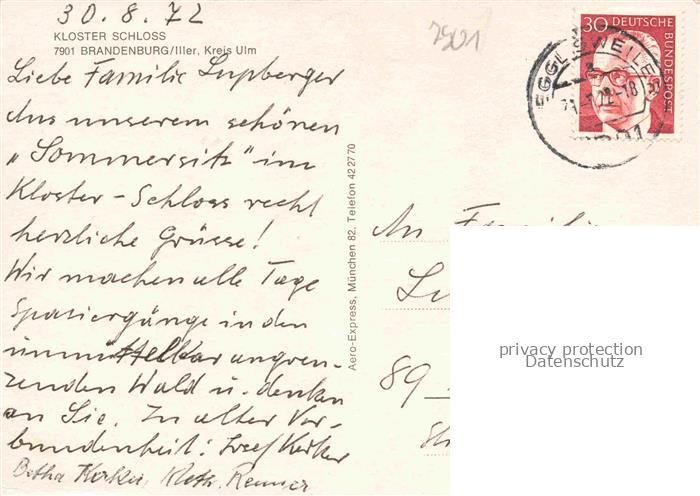 30.8.72
KLOSTER SCHLOSS
7901 BRANDENBURG/Iller, Kreis Ulm
Liebe Familie Lupberger
Aus unserem schönen
„Sommersitz" im
Kloster-Schloss recht
herzliche Grüsse!
Wir machen alle Tage
Spaziergänge in den
unmittelbar angren-
zenden Wald u. denken
an Sie. In alter Ver-
bundenheit: Josef Kerker
Betha Kerker, Kath. Renner
Aero-Express, München 82, Telefon 422770
7901
30 DEUTSCHE
BUNDESPOST
EGGLISWEILER
An Familie
Lu
89
privacy protection
Datenschutz